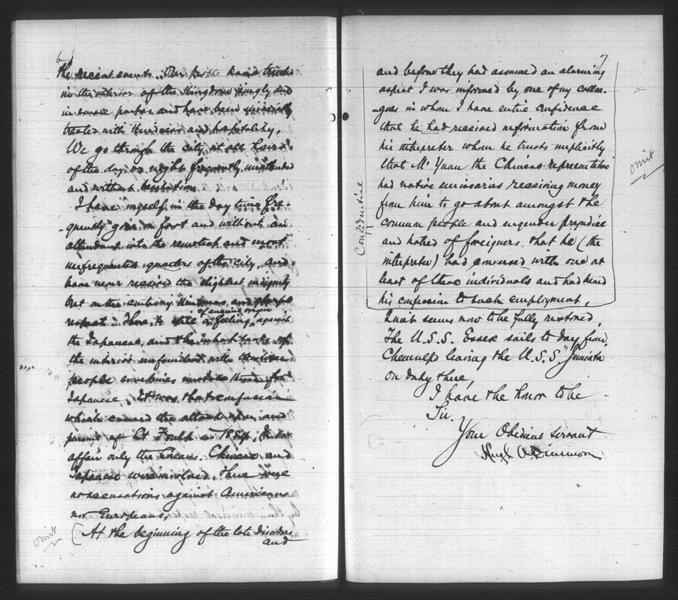 6
the recent events. Our people have travelled
in the interior of the Kingdom singly and
in small parties and have been uniformly
treated with kindness and hospitality.
We go through the city at all hours
of the day or night frequently unattended
and without hesitation.
I have myself in the day time fre-
quently gone on foot and without an
attendant into the remotest and most
unfrequented quarters of the city, and
have never received the slightest indignity
but on the contrary kindness and
respect. There is still a feeling of against
the Japanese, and the
the interior with the
people sometimes for
Japanese. It was that confusion
which caused the attack upon and
pursuit of Lt Foulk in 1884. In
affair only the Koreans, Chinese and
Japanese were involved. There were
no accusations against Americans
nor Europeans.
omit
(At the beginning of the late disorders
and
7
and before they had assumed an alarming
aspect I was informed by one of my collea-
gues in whom I have entire confidence
that he had received information from
his interpreter whom he trusts implicitly
that Mr Yuan the Chinese representative
had native emissaries receiving money
from him to go about amongst the
common people and engender prejudice
and hatred of foreigners, that he (the
interpreter) had conversed with one at
least of these individuals and had heard
his confession to such employment.
Confidential
omit
Quiet seems now to be fully restored.
The U.S.S. Essex sails to day from
Chemulpo leaving the U.S.S. "Juniata
on duty there.
I have the honor to be
Sir,
Your Obedient servant
Hugh A Dinsmore